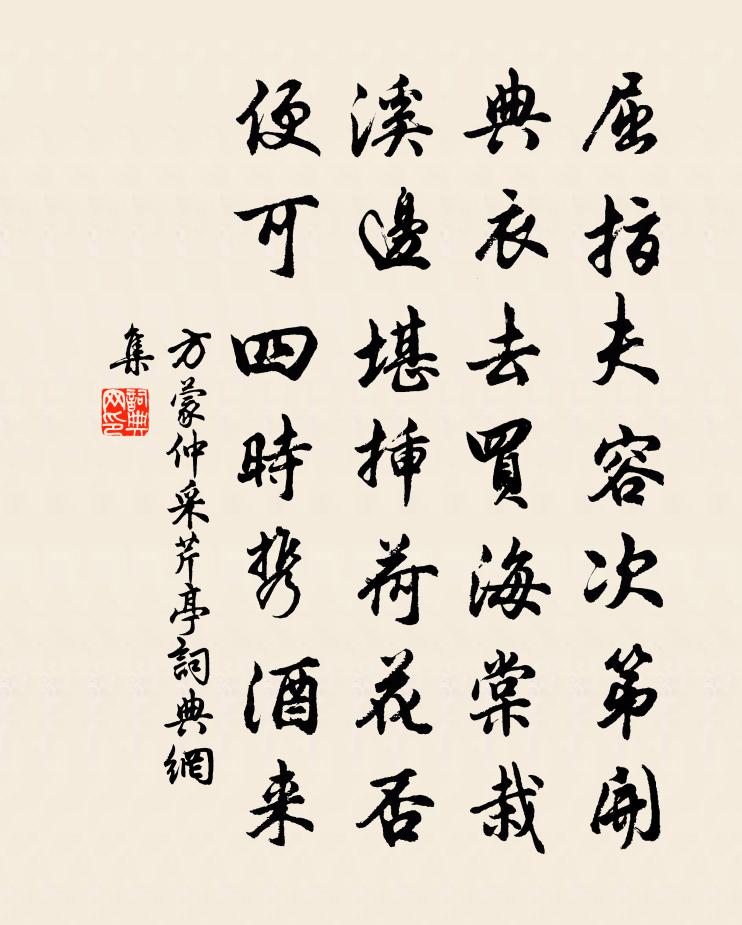 屈指夫容次第開
典衣去買海棠栽
溪邊堪揷荷花否
便可四時携酒来
方蒙仲采芹亭詞典網
集
詞典网印